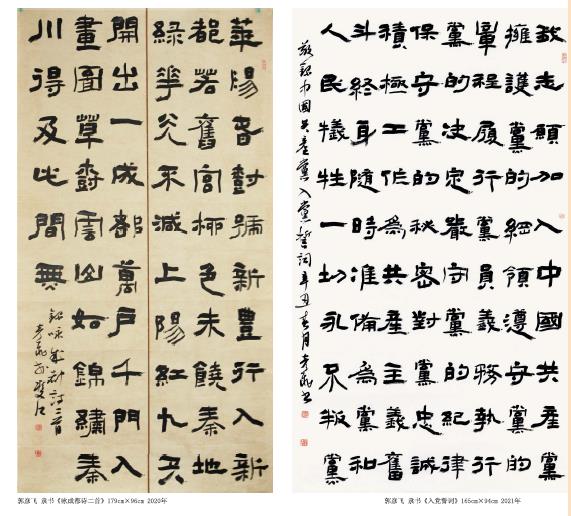 華陽春樹號新豐行入新
都若舊宮柳色未饒秦地
綠花光不減上陽紅九天
開出一成都萬戶千門入
畫圖草樹雲山如錦繡秦
川得及此間無
錄咏成都詩二首
彥飛於雙江
郭彦飞 隶书《咏成都诗二首》179cm×96cm 2020年
我志願加入中國共產黨
擁護黨的綱領遵守黨的
章程履行黨員義務執行
黨的决定嚴守黨的紀律
保守黨的秘密對黨忠誠
積極工作為共產主義奮
斗終身隨時准備為黨和
人民犧牲一切永不叛黨
敬錄中國共產黨入黨誓詞辛丑春月彥飛書
郭彦飞 隶书《入党誓词》165cm×94cm 2021年